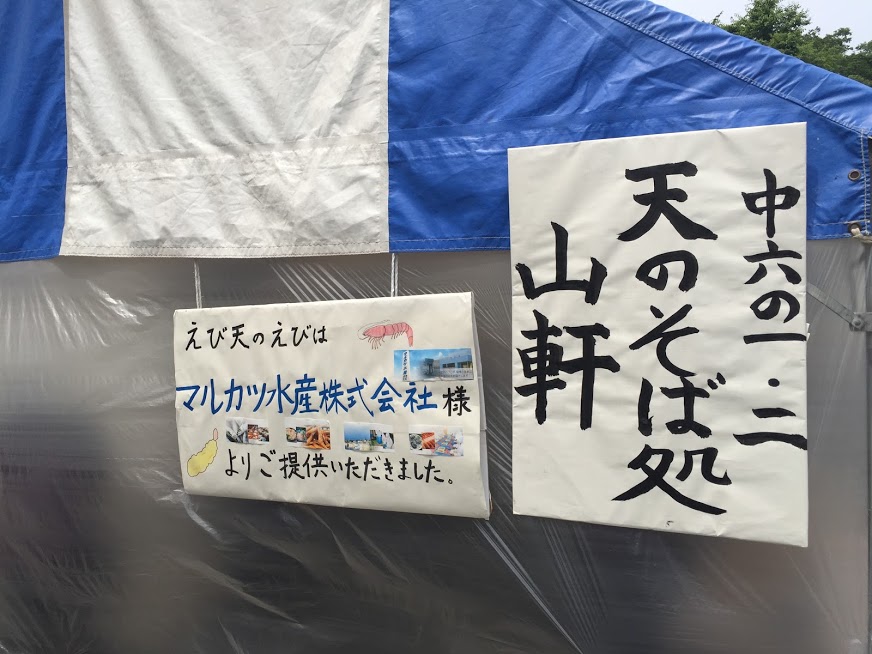 えび天のえびは
マルカツ水産株式会社様
よりご提供いただきました。
中六の一・二
天のそば処
山軒